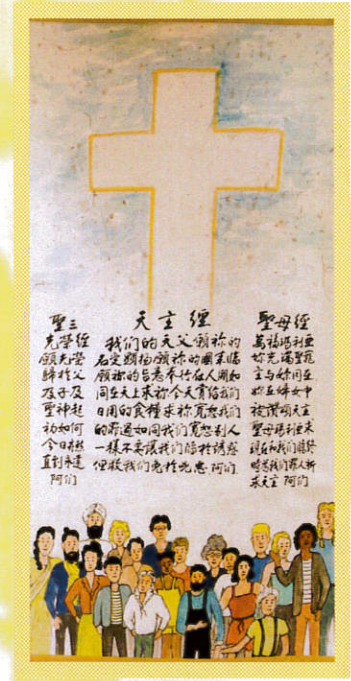 聖三
光榮經
願光榮
歸於父
及子及
聖神起
初如何
今日亦然
直到永遠
阿们
天主經
我们的天父願祢的
名受顯揚願祢的國來臨
願祢的旨意奉行在人间如
同在天上求祢今天賞给我们
日用的食糧求祢寬恕我们
的罪過如同我们寬恕别人
一樣不要讓我们陷於誘惑
但救我们免於凶恶 阿们
聖母經
萬福瑪利亜
妳充滿聖寵
主与妳同在
妳在婦女中
被讚頌天主
聖母瑪利亜求
现在和我们臨終
時為我们罪人祈
求天主 阿们